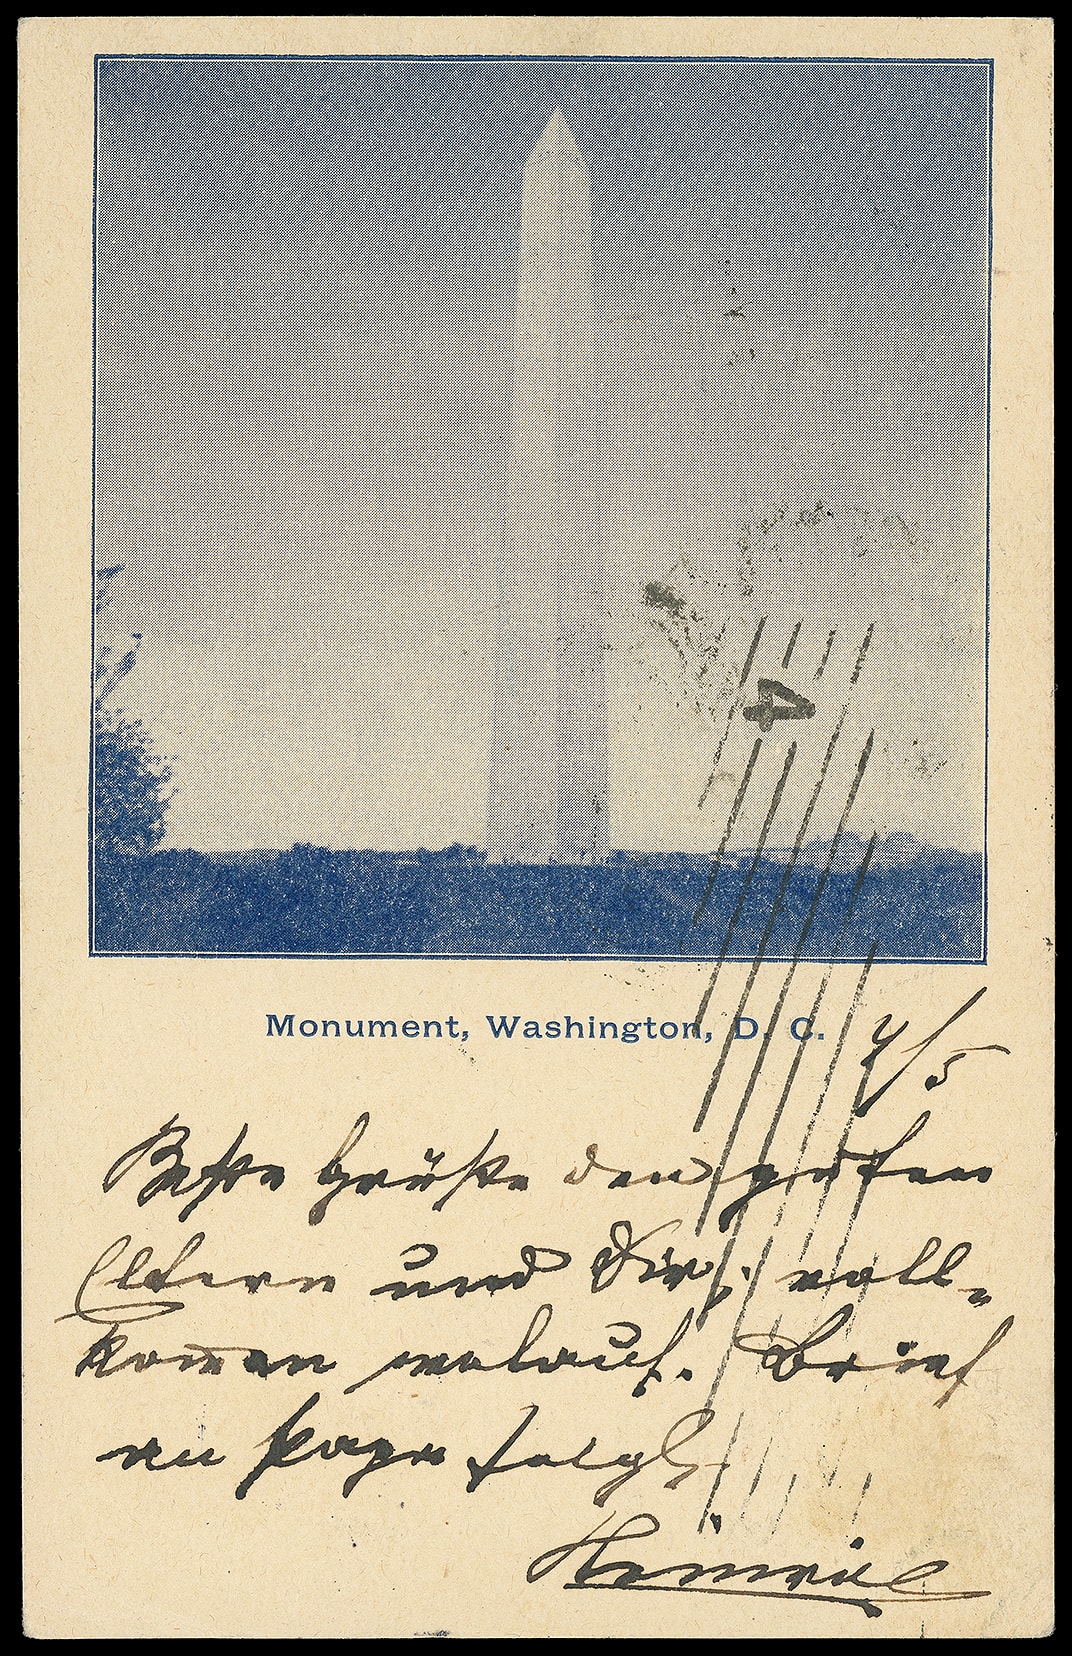 Monument, Washington, D. C.
4
7/5
Beste Grüße den guten
Eltern und Dir, voll-
kommen wolauf. Brief
an Papa folgt.
Heinrich